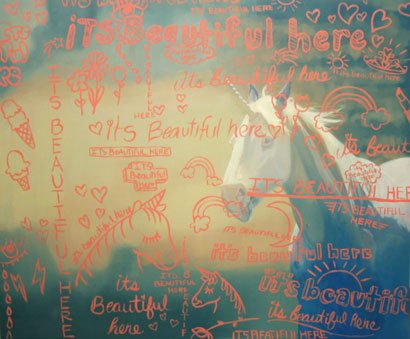 BEAUTIFUL HERE
iTS Beautiful here!
ITS BEAUTIFUL HERE
its Beautiful here
its Beautiful here
ITS BEAUTIFUL HERE
its Beautiful here
its Beautiful
ITS BEAUTIFUL HERE
ITS BEAUTIFUL HERE
its beautiful here
ITS BEAUTIFUL
its beautiful here
its Beautiful here
ITS BEAUTIFUL HERE
its beautiful
its Beautiful here
ITS BEAUTIFUL HERE